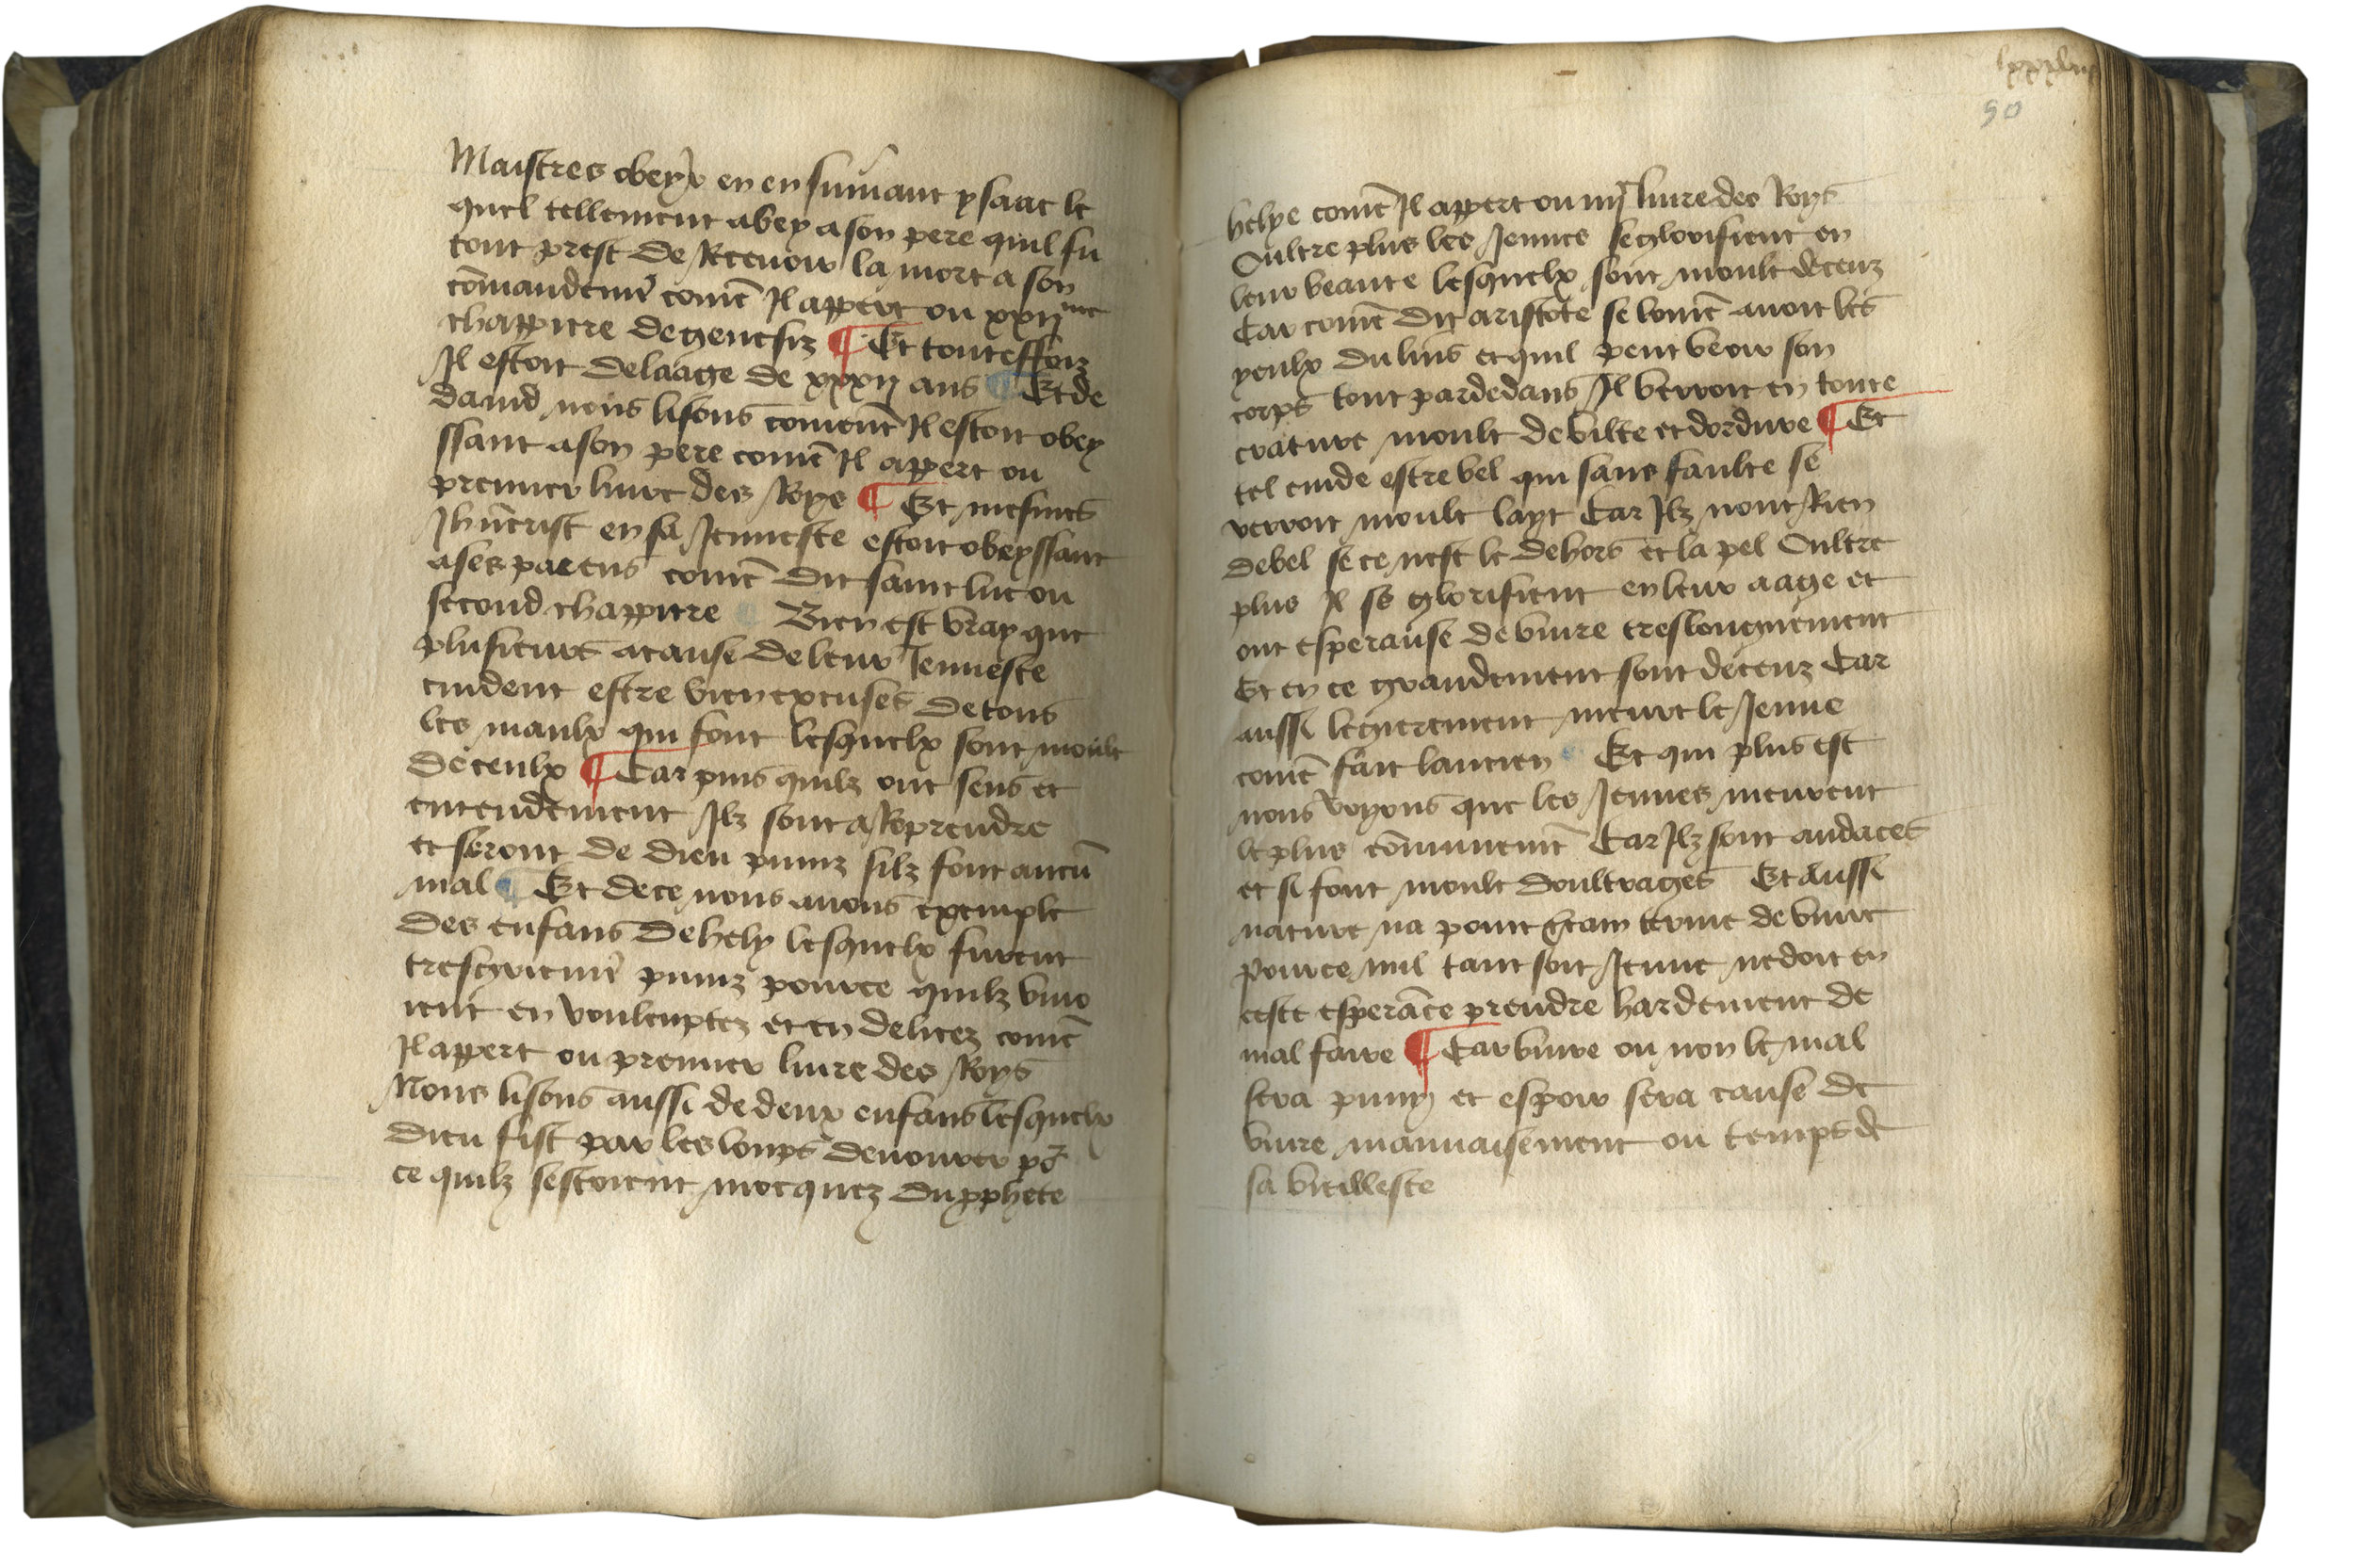 Maistres obeyr en ensuiuant ysaac le
quel tellement abey a son pere quil fu
tout prest de Receuoir la mort a son
cōmandemēt comē Il appert ou xxijme
chappitre de genesiz ¶ Et touteffoiz
Il estoit de laage de xxxij ans ¶ Et de
dauid nous lisons comēt Il estoit obey
ssant a son pere comē Il appert ou
premier liure des Roys ¶ Et mesmes
Jhūcrist en sa Jennesse estoit obeyssant
a ses parens comē dit saint luc ou
second chappitre ¶ Bien est vray que
plusieurs a cause de leur Jennesse
cuident estre bien excuses de tous
les maulx qui font lesquelx sont moult
deceulx ¶ Car puis quilz ont sens et
entendement Ilz sont a Reprendre
et seront de dieu puniz silz font aucū
mal ¶ Et de ce nous auons exemple
des enfans de hely lesquelx furent
tresgriemēt puniz pource quilz viuo
ient en voulenptez et en delicez comē
Il appert ou premier liure des Roys
Nous lisons aussi de deux enfans lesquelx
dieu fist par les loups deuourer po
ce quilz sestoient mocquez du pphete
lxxxix
90
helye comē Il appert ou iiij liure des Roys
Oultre plus les Jennes se glorifient en
leur beaute lesquelx sont moult deceuz
Car comē dit aristote se lomē auoit les
yeulx du lins et quil peut veoir son
corps tout par dedans Il verroit en toute
crature moult de vilte et dordure ¶ Et
tel cuide estre bel qui sans faulte se
verroit moult layt Car Ilz nont Rien
de bel se ce nest le dehors et la pel Oultre
plus Il se glorifient en leur aage et
ont esperanse de viure treslonguement
Et en ce grandement sont deceuz Car
aussi legierement meurt le Jenne
comē fait lancien ¶ Et qui plus est
nous voyons que les Jennes meurent
le plus cōmunemēt Car Ilz sont audaces
et si font moult doultrages Et Aussi
nature na point terme de viure
Pource nul tant soit Jenne ne doit en
ceste esperāce prendre hardement de
mal faire ¶ Car viure ou non le mal
sera puny et espoir sera cause de
viure mauuaisement ou temps de
sa vieillesse